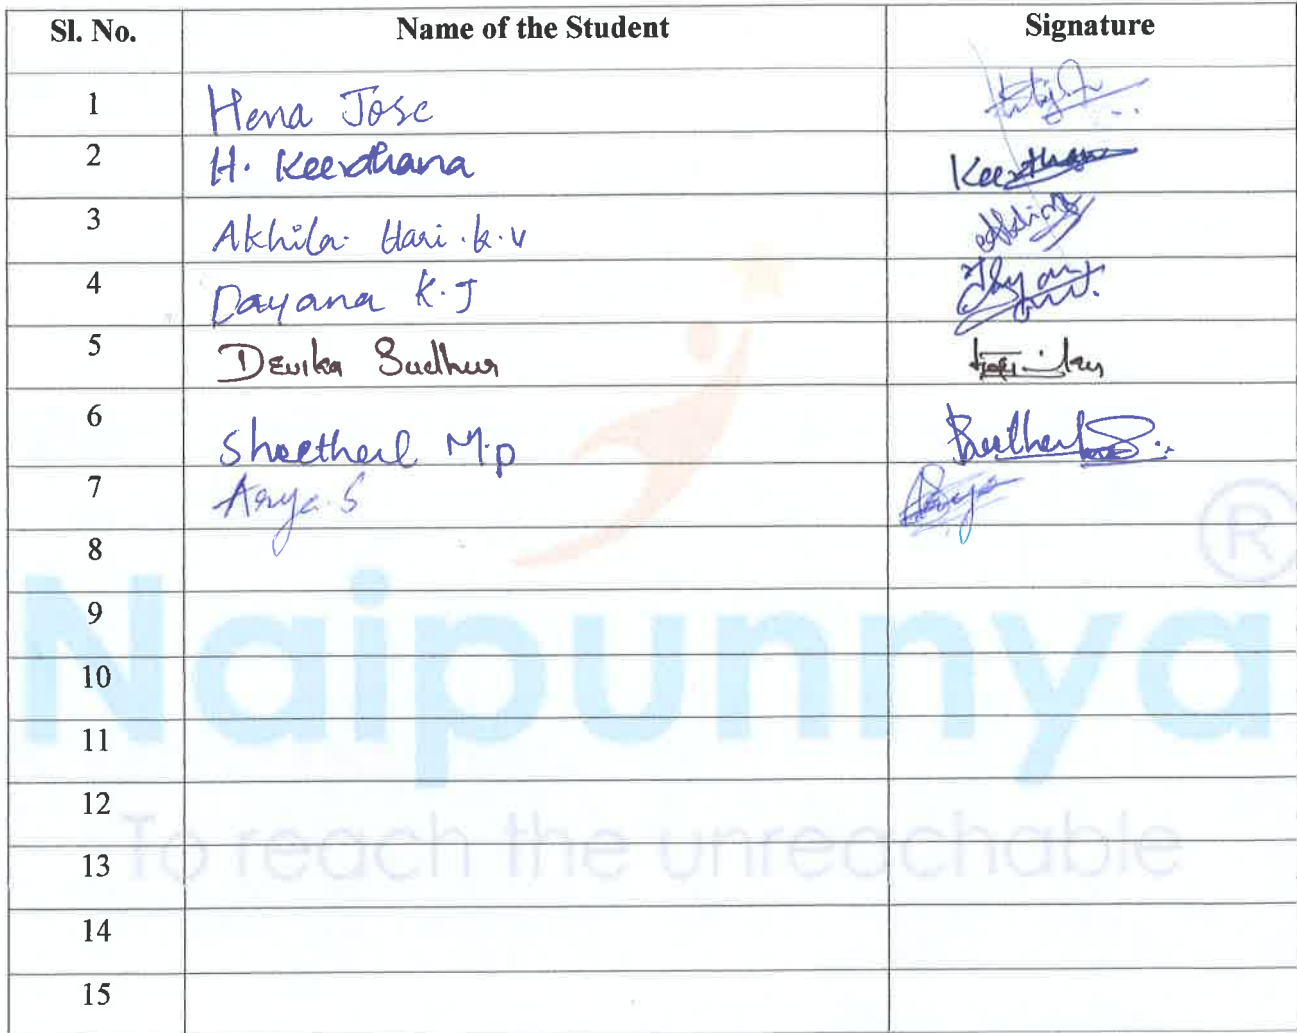 Sl. No. Name of the Student Signature
1 Hena Jose
2 H. Keerdhana Keerdhana
3 Akhila Hari.k.v
4 Dayana K.J
5 Devika Sudhur
6 Sheethal M.p
7 Arya.S Arya
8
9
10
11
12
13
14
15
Naipunnya ®
To reach the unreachable